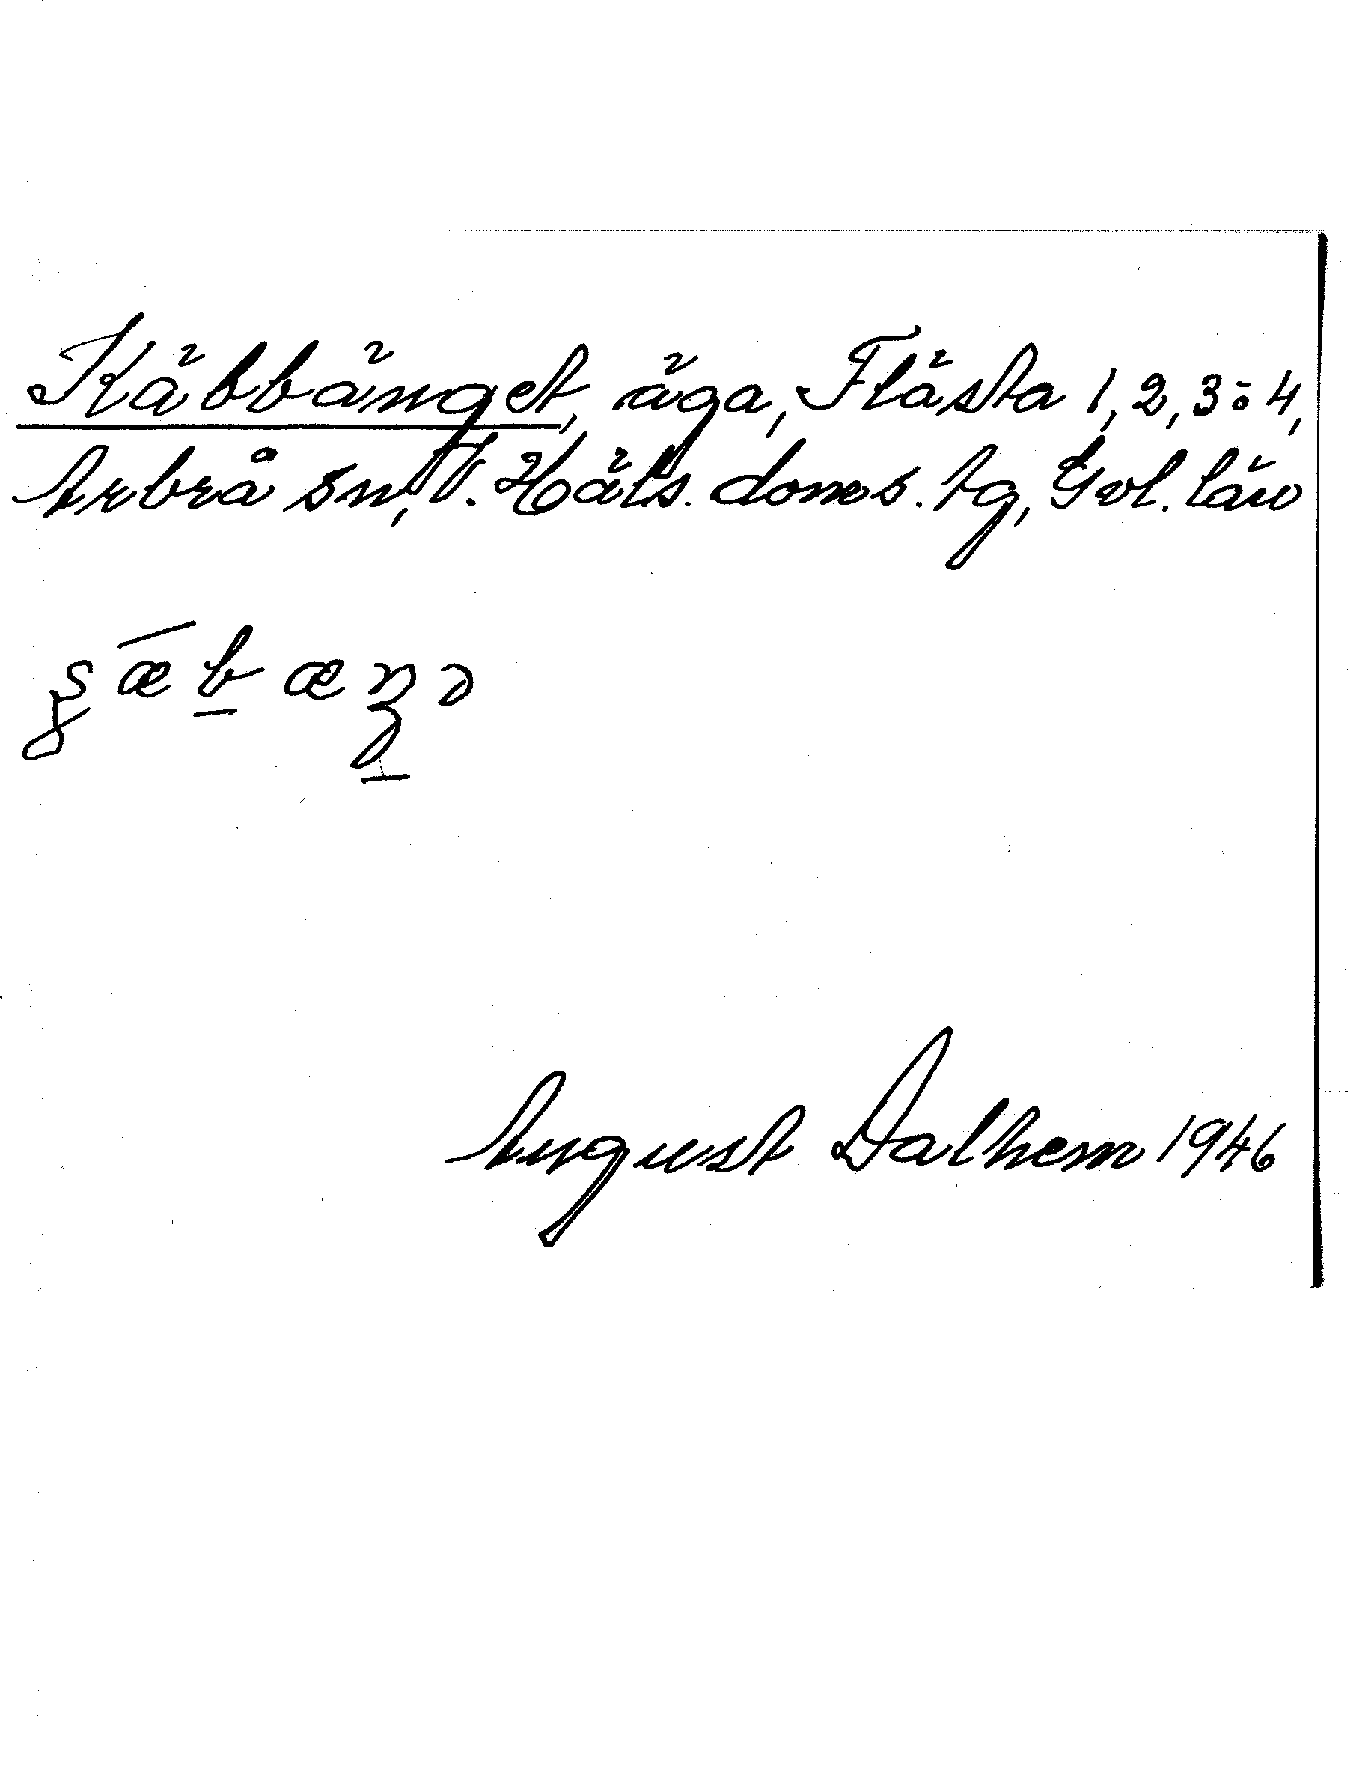 Käbbänget, äga, Flästa 1, 2, 3 o 4,
Arbrå sn, V. Häls. doms. tg, Gvl. län
August Dalhem 1946